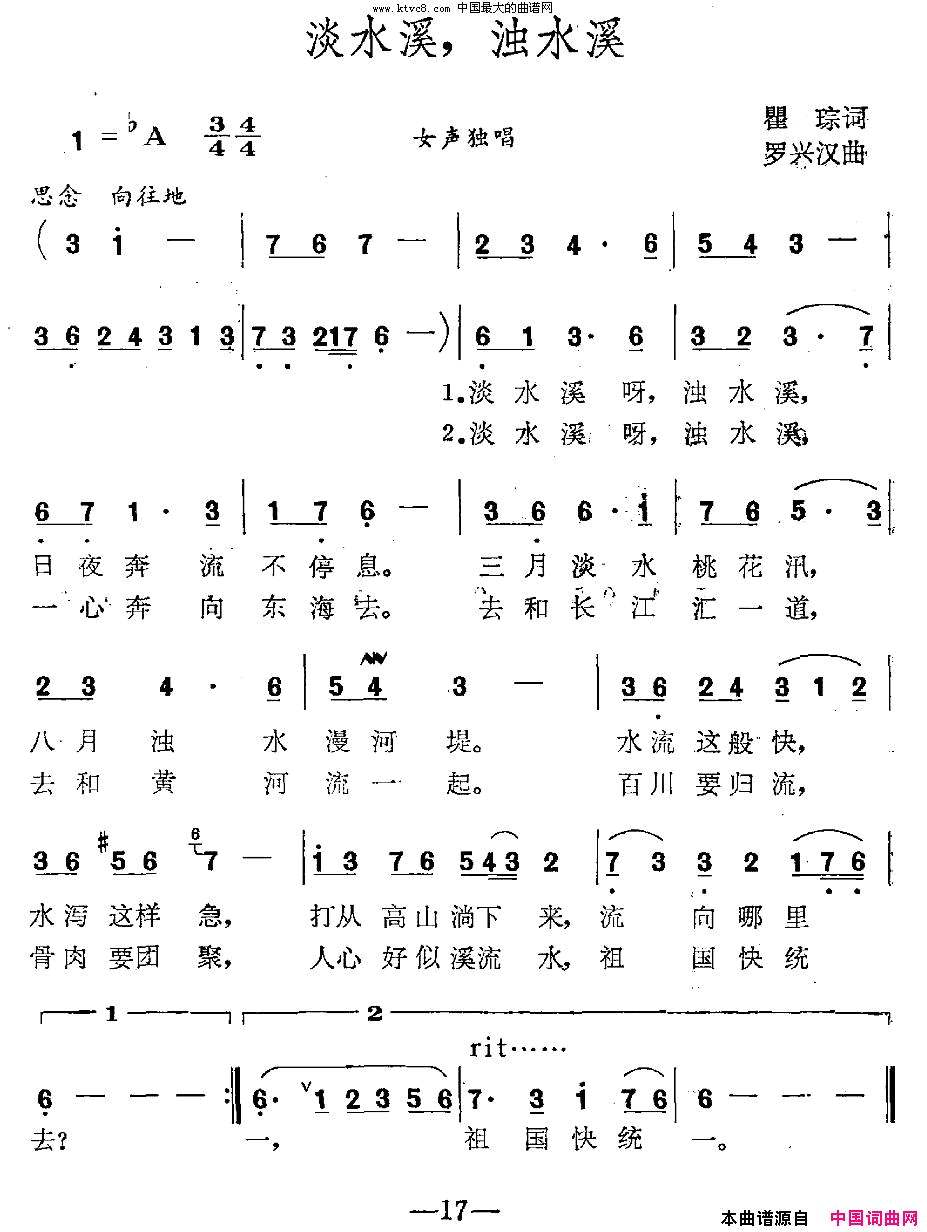 www.ktvc8.com 中国最大的曲谱网
淡水溪，浊水溪
1 = ♭A 3/4 4/4 女声独唱 瞿 琮词
罗兴汉曲
思念 向往地
( 3 i — | 7 6 7 — | 2 3 4 · 6 | 5 4 3 — |
3 6 2 4 3 1 3 | 7 3 2 1 7 6 — ) | 6 1 3 · 6 | 3 2 3 · 7 |
1.淡水溪呀，浊水溪，
2.淡水溪呀，浊水溪，
6 7 1 · 3 | 1 7 6 — | 3 6 6 · i | 7 6 5 · 3 |
日夜奔流不停息。三月淡水桃花汛，
一心奔向东海去。去和长江汇一道，
2 3 4 · 6 | 5 4 3 — | 3 6 2 4 3 1 2 |
八月浊水漫河堤。水流这般快，
去和黄河流一起。百川要归流，
3 6 #5 6 6 7 — | i 3 7 6 5 4 3 2 | 7 3 3 2 1 7 6 |
水泻这样急，打从高山淌下来，流向哪里
骨肉要团聚，人心好似溪流水，祖国快统
1 2
rit……
6 — — — :‖ 6 · ∨ 1 2 3 5 6 | 7 · 3 i 7 6 | 6 — — — ‖
去？ 一， 祖国快统一。
—17—
本曲谱源自 中国词曲网